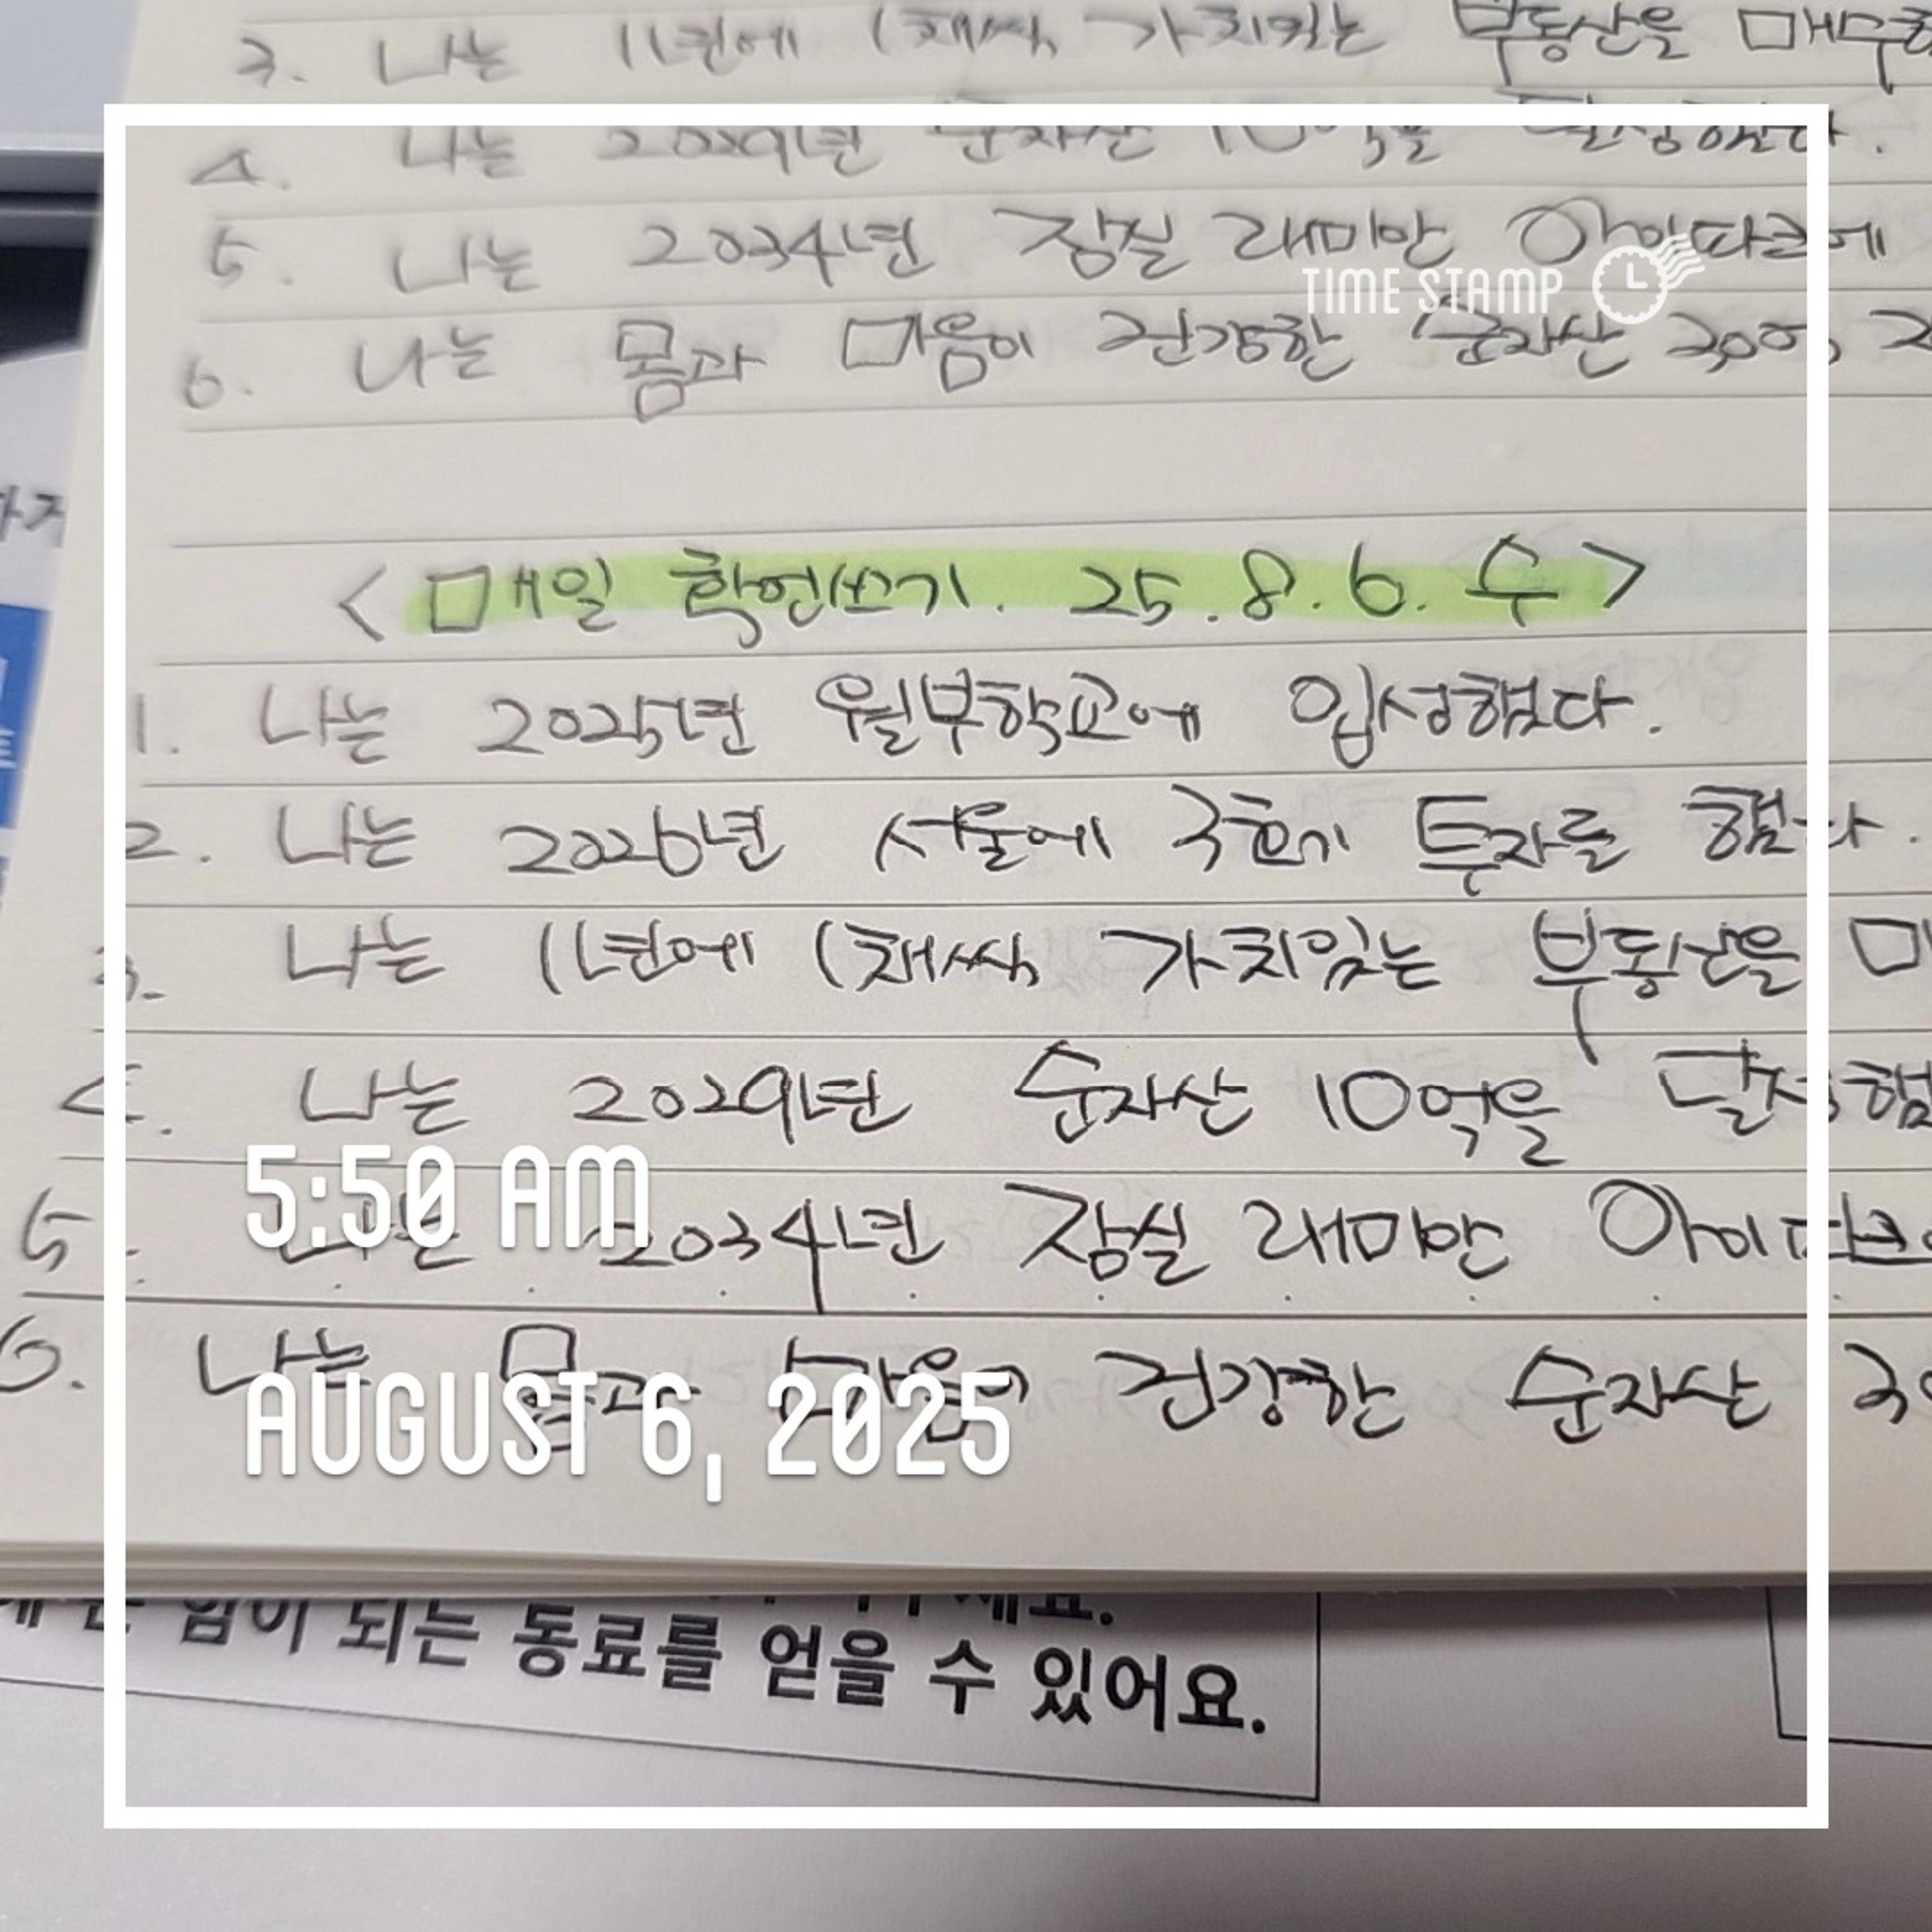 3. 나는 1년에 1채씩, 가치있는 부동산을 매수
4. 나는 2029년 순자산 10억을 달성했다.
5. 나는 2034년 잠실 래미안 아이파크에
TIME STAMP
6. 나는 몸과 마음이 건강한 순자산 300억
<매일 확언쓰기. 25.8.6. 수>
1. 나는 2025년 월부학교에 입성했다.
2. 나는 2026년 서울에 3호기 투자를 했다.
3. 나는 1년에 1채씩, 가치있는 부동산을
4. 나는 2029년 순자산 10억을 달성했
5:50 AM
5. 나는 2034년 잠실 래미안 아이파크
6. 나는 몸과 마음이 건강한 순자산
AUGUST 6, 2025
힘이 되는 동료를 얻을 수 있어요.